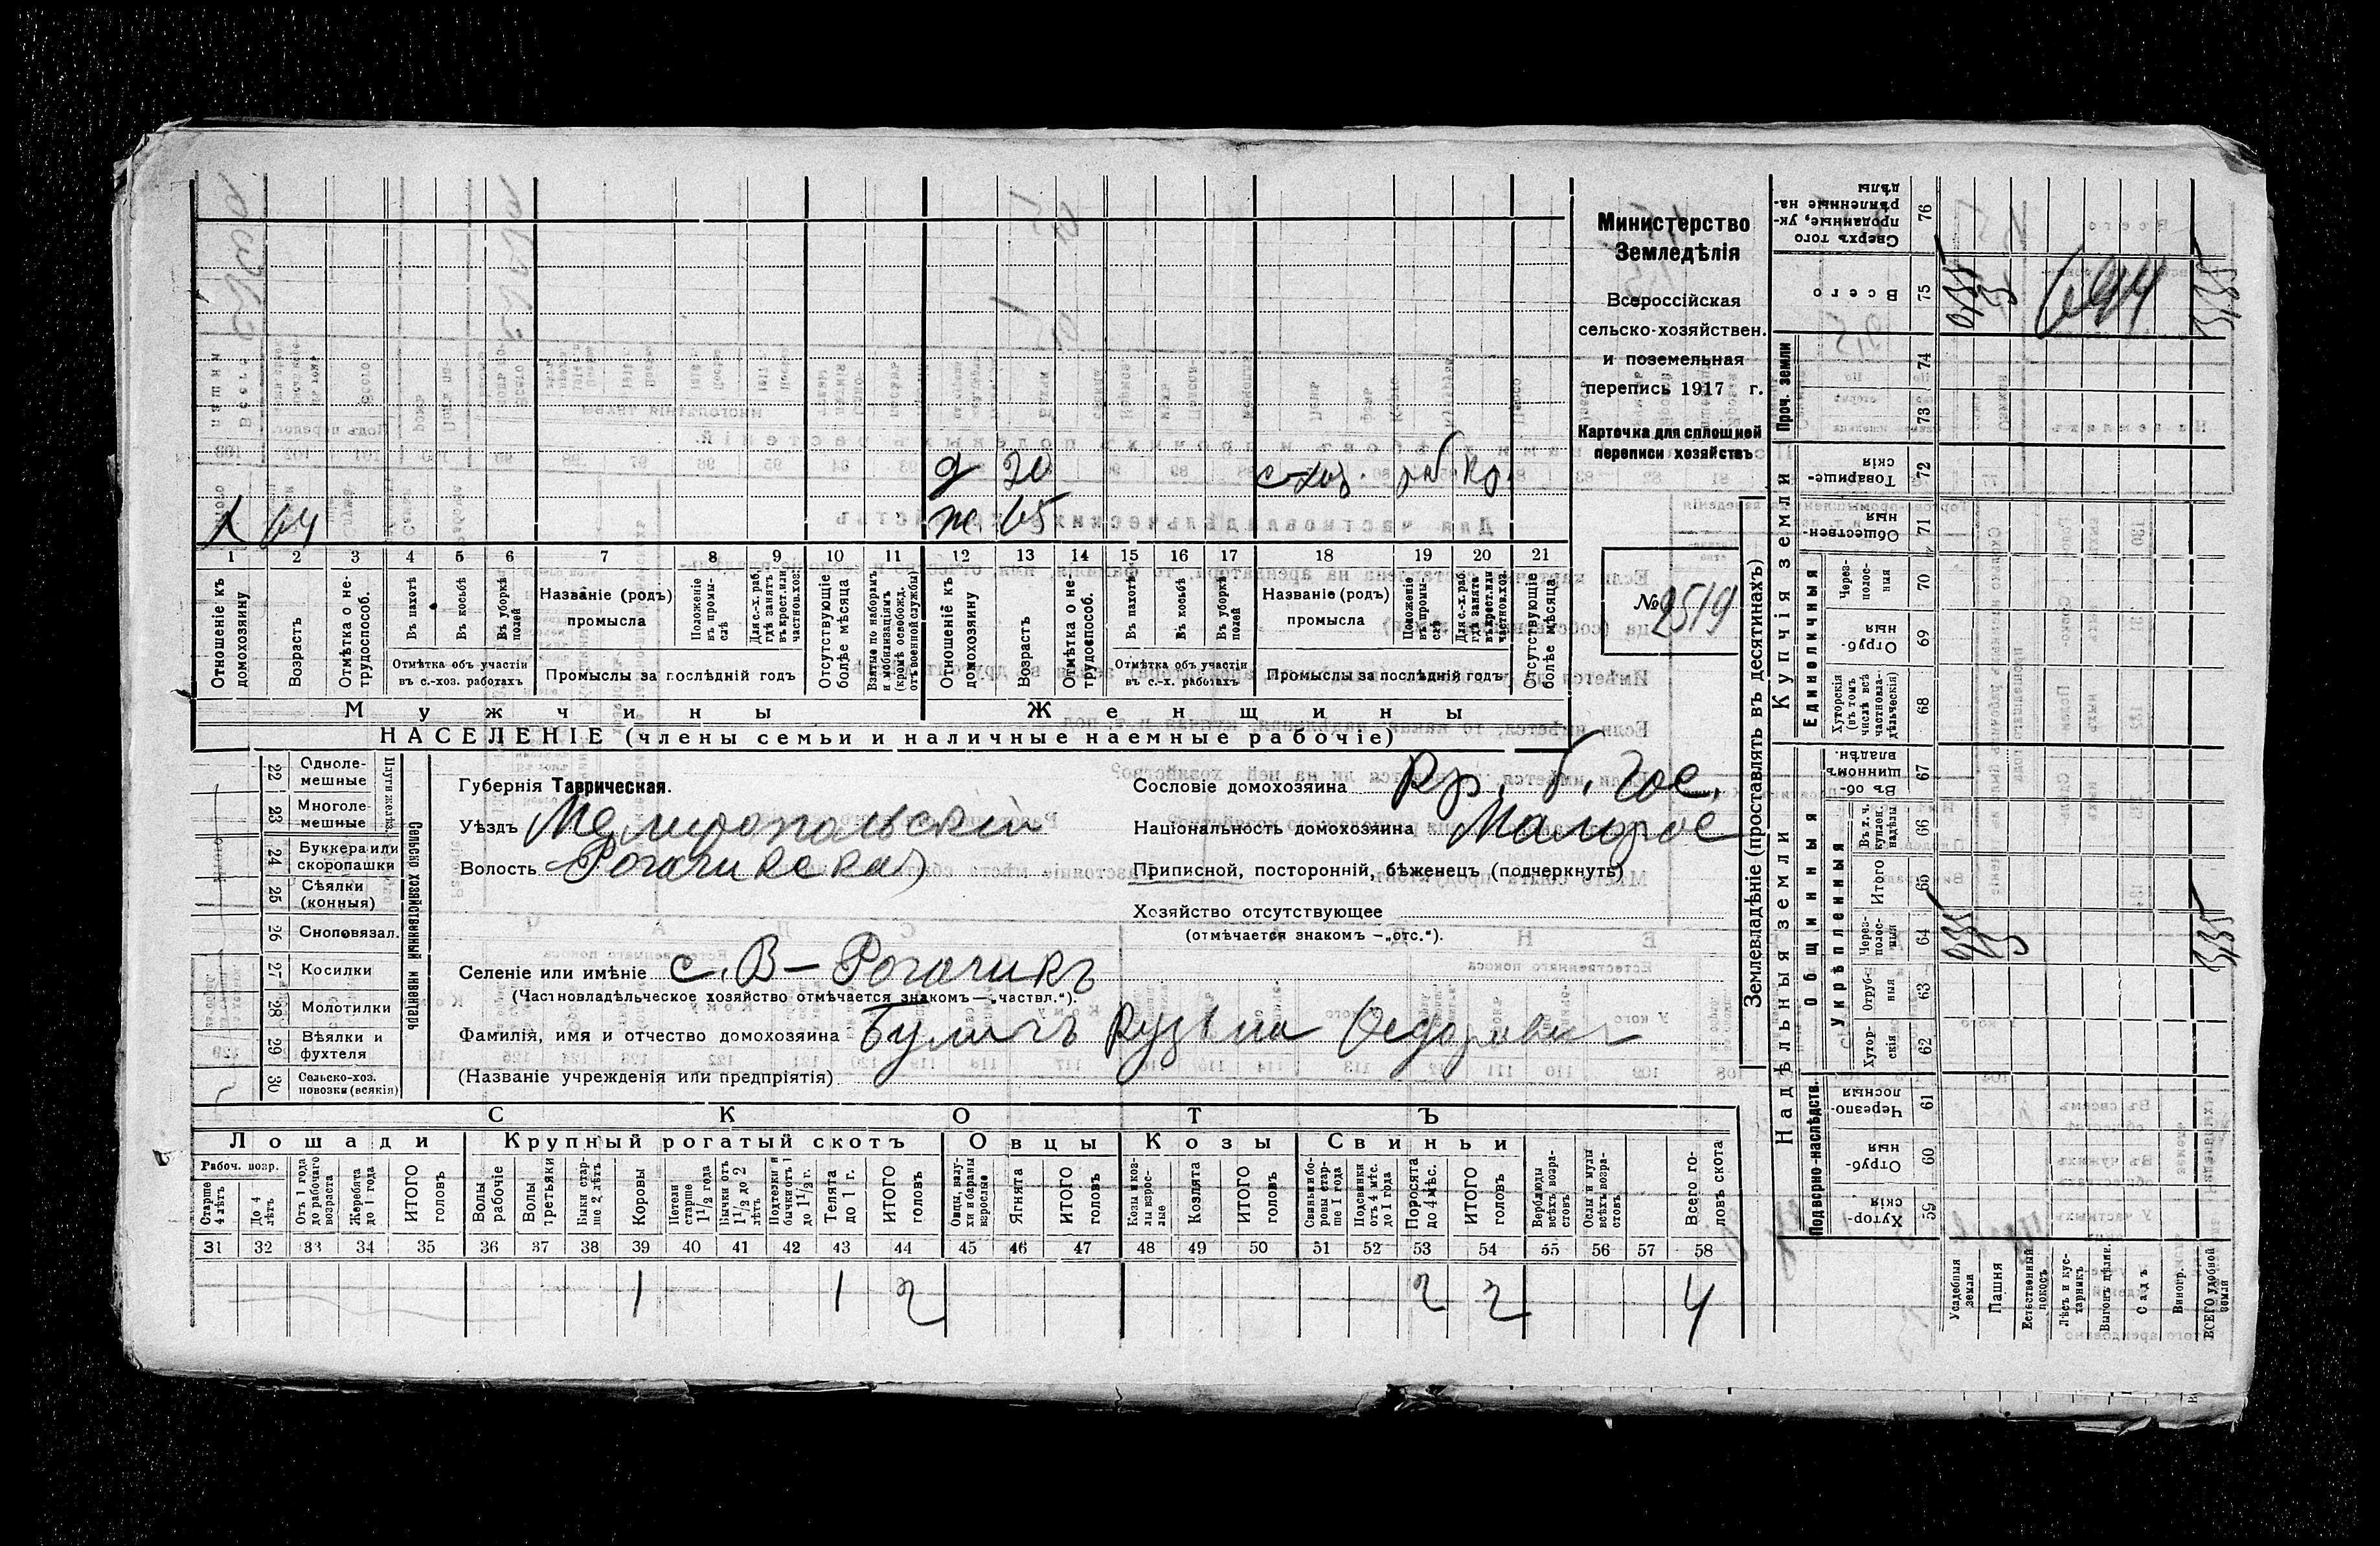 Министерство
Земледѣлія
Всероссійская
сельско-хозяйствен.
и поземельная
перепись 1917 г.
Карточка для сплошной
переписи хозяйствъ
№ 2519
д 20 с-хоз.
х 64 ж 65
1 2 3 4 5 6 7 8 9 10 11 12 13 14 15 16 17 18 19 20 21
Отношеніе къ домохозяину
Возрастъ
Отмѣтка о не-трудоспособ.
Въ пахотѣ
Въ косьбѣ
Въ уборкѣ полей
Отмѣтка объ участіи въ с.-хоз. работахъ
Названіе (родъ) промысла
Положеніе въ промы-слѣ
Для с.-х. раб. гдѣ занятъ въ крест. или частнов. хоз.
Промыслы за послѣдній годъ
Отсутствующіе болѣе мѣсяца
Взятые по наборамъ и мобилизаціямъ (кромѣ освобожд. отъ военной службы)
Отношеніе къ домохозяину
Возрастъ
Отмѣтка о не-трудоспособ.
Въ пахотѣ
Въ косьбѣ
Въ уборкѣ полей
Отмѣтка объ участіи въ с.-х. работахъ
Названіе (родъ) промысла
Положеніе въ промы-слѣ
Для с.-х. раб. гдѣ занята въ крест. или частнов. хоз.
Промыслы за послѣдній годъ
Отсутствующіе болѣе мѣсяца
Мужчины Женщины
НАСЕЛЕНІЕ (члены семьи и наличные наемные рабочіе)
Сельско-хозяйственный инвентарь.
Плуги желѣз.
22 Одноле-мешные
23 Многоле-мешные
24 Буккера или скоропашки
25 Сѣялки (конныя)
26 Сноповязал.
27 Косилки
28 Молотилки
29 Вѣялки и фухтеля
30 Сельско-хоз. повозки (всякія)
Губернія Таврическая.
Уѣздъ Мелитопольскій
Волость Рогачикская
Селеніе или имѣніе с. В-Рогачикъ
(Частновладѣльческое хозяйство отмѣчается знакомъ—„частвл.“).
Фамилія, имя и отчество домохозяина Кузьма Федорович
(Названіе учрежденія или предпріятія)
Сословіе домохозяина Кр. б. гос.
Національность домохозяина Малорос
Приписной, посторонній, бѣженецъ (подчеркнуть)
Хозяйство отсутствующее
(отмѣчается знакомъ —„отс.“).
СКОТЪ
Лошади Крупный рогатый скотъ Овцы Козы Свиньи
Рабоч. возр.
Старше 4 лѣтъ
До 4 лѣтъ
Отъ 1 года до рабочаго возраста
Жеребята до 1 года
ИТОГО головъ
Волы рабочіе
Волы третьяки
Быки стар-ше 2 лѣтъ
Коровы
Нетели старше 1½ года
Бычки отъ 1½ до 2 лѣтъ
Подтелки и бычки отъ 1 до 1½ г.
Телята до 1 г.
ИТОГО головъ
Овцы, валу-хи и бараны взрослые
Ягнята
ИТОГО головъ
Козы и коз-лы взрос-лые
Козлята
ИТОГО головъ
Свиньи и бо-ровы стар-ше 1 года
Подсвинки отъ 4 мѣс. до 1 года
Поросята до 4 мѣс.
ИТОГО головъ
Верблюды всѣхъ возра-стовъ
Ослы и мулы всѣхъ возра-стовъ
Всего го-ловъ скота
31 32 33 34 35 36 37 38 39 40 41 42 43 44 45 46 47 48 49 50 51 52 53 54 55 56 57 58
1 1 2 2 2 4
Землевладѣніе (проставлять въ десятинахъ)
Надѣльныя земли Купчія земли Проч. земли
Подворно-наслѣдств. Общинныя Единоличныя
Укрѣпленныя
Хутор-скія 59
Отруб-ныя 60
Черезпо-лосныя 61
Хутор-скія 62
Отруб-ныя 63
Через-полос-ныя 64
Итого 65
Въ т. ч. куплен. надѣлы 66
Въ об-щинномъ владѣн. 67
Хуторскія (въ томъ числѣ всѣ частновла-дѣльческія) 68
Отруб-ныя 69
Через-полос-ныя 70
Обществен-ныя 71
Товарище-скія 72
73
74
Всего 75
Сверхъ того проданные, ук-рѣпленные на-дѣлы 76
Усадебныя земли
Пашня
Естественный покосъ
Лѣсъ и кус-тарникъ
Выгонъ цѣлик.
Садъ
Виногр.
ВСЕГО удобной земли